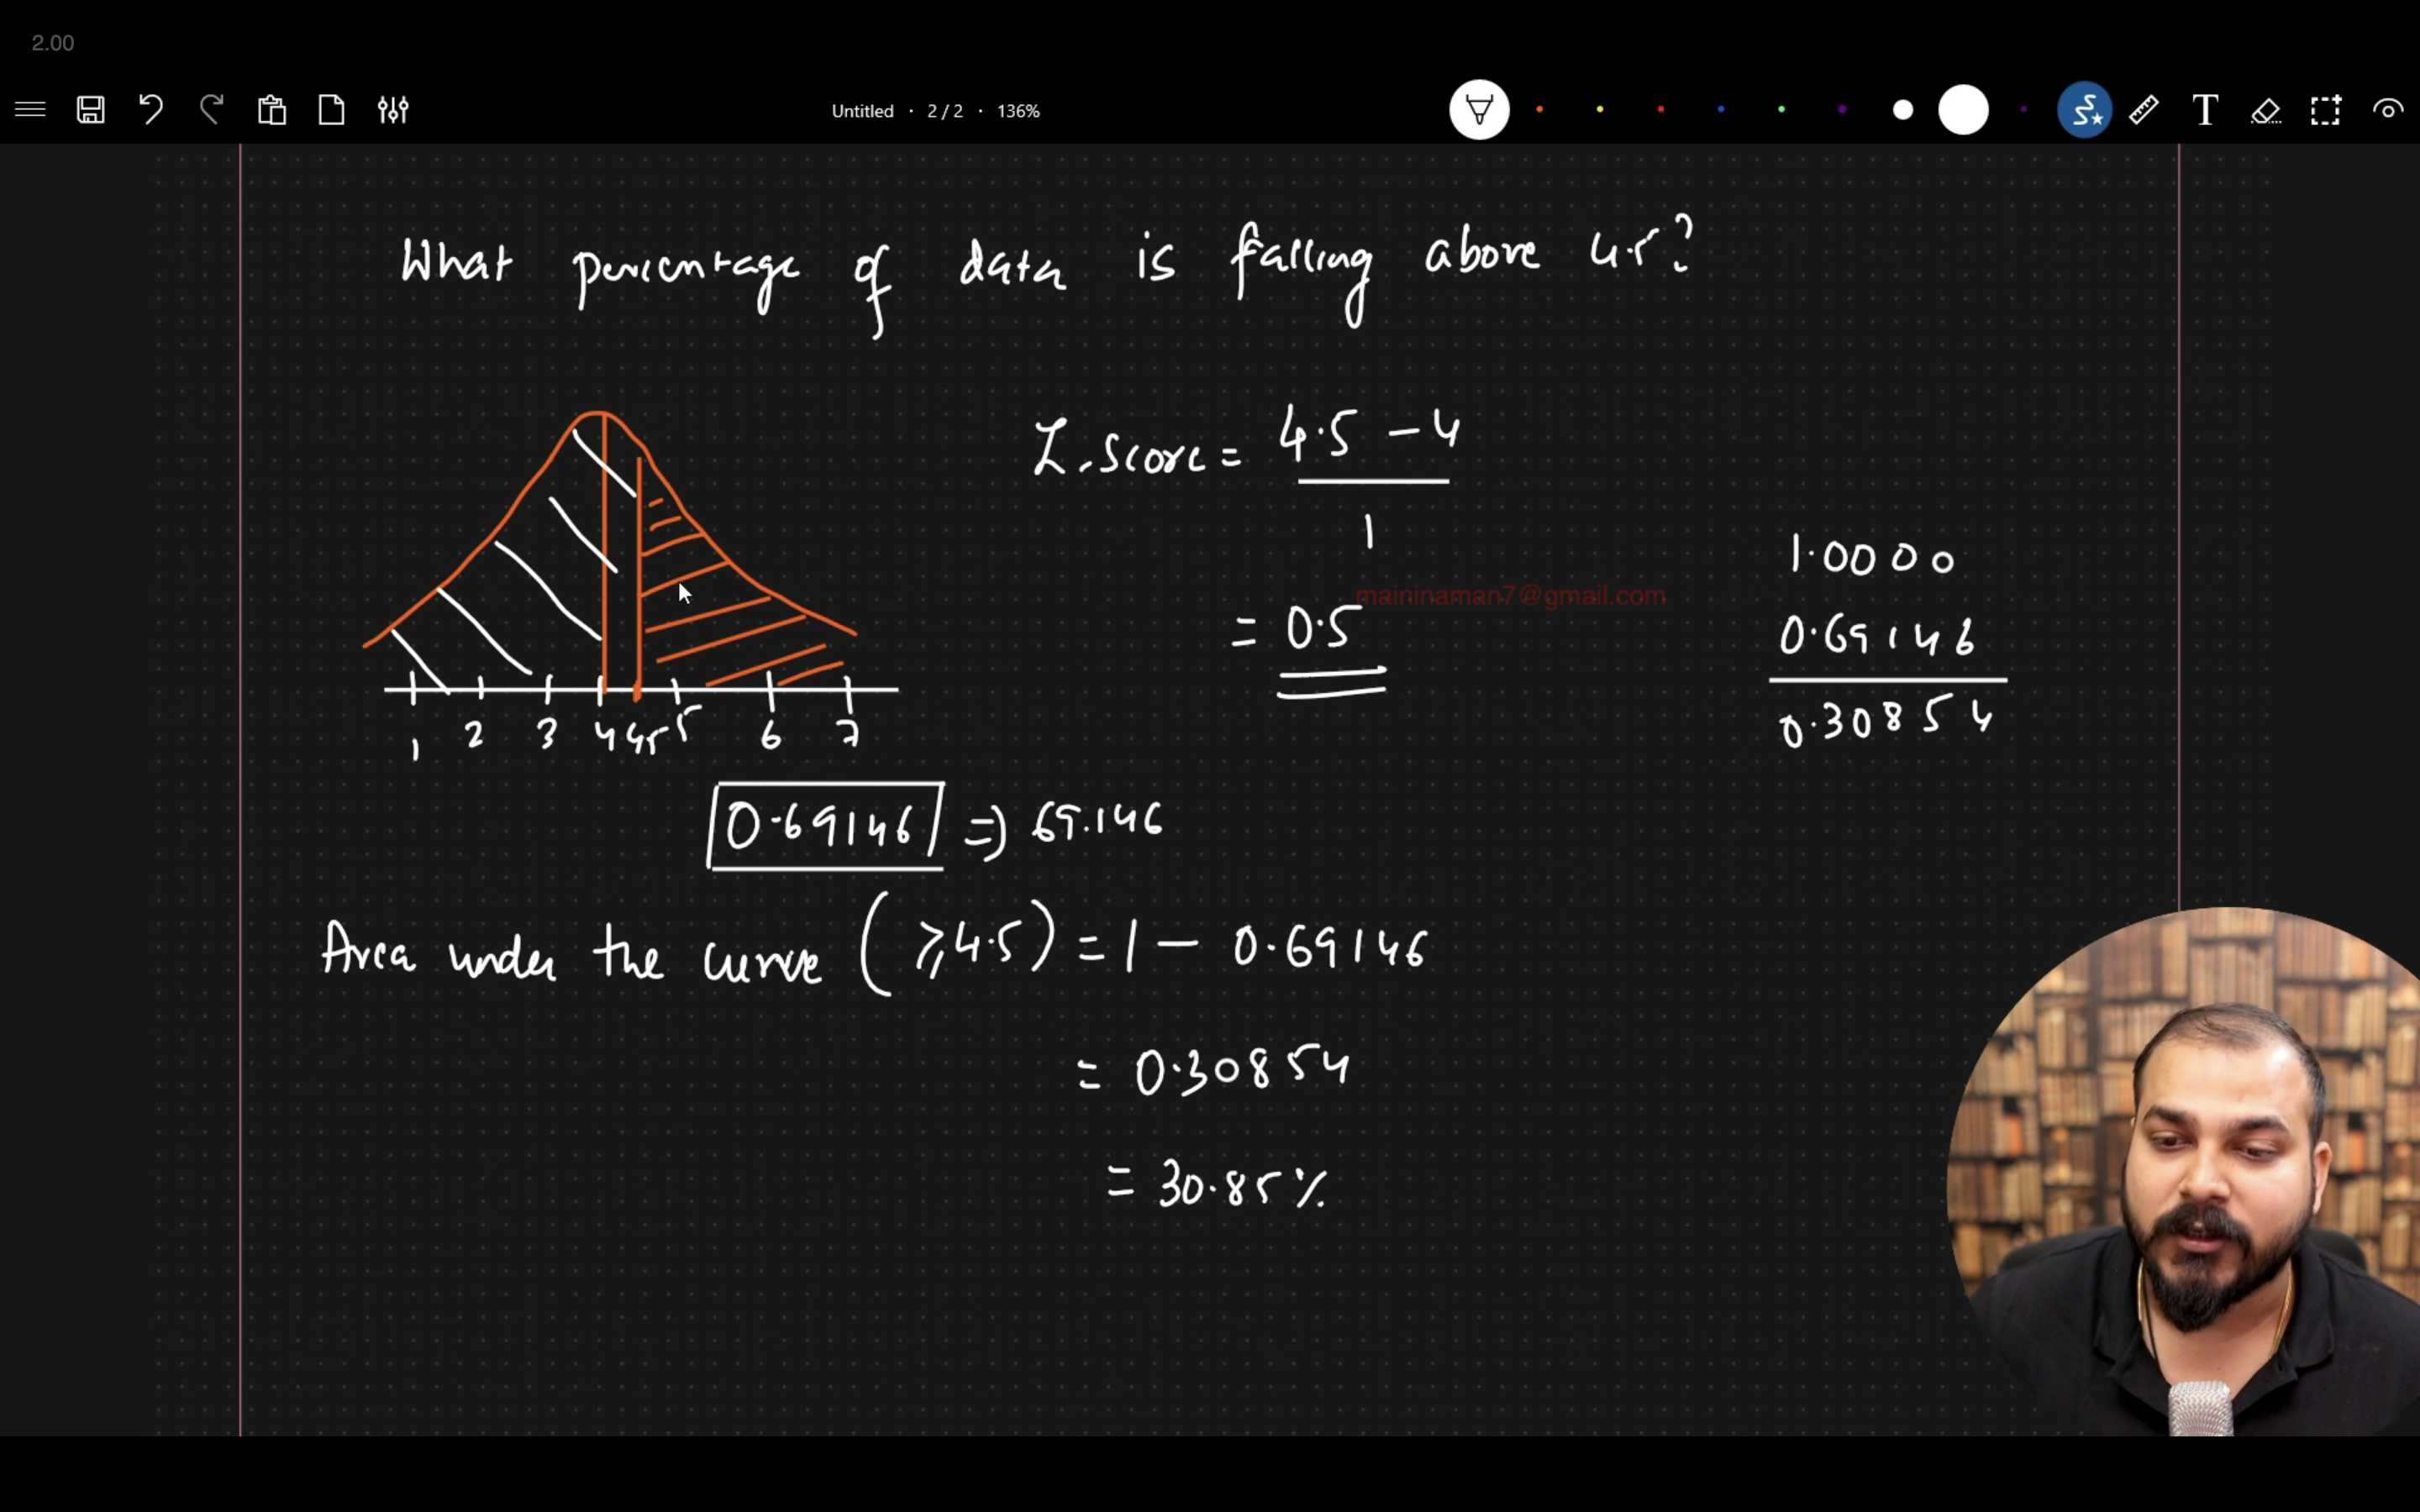 2.00
Untitled · 2 / 2 · 136%
T
What percentage of data is falling above 4.5?
Z.Score = 4.5 - 4
1
= 0.5
maininaman7@gmail.com
1.0000
0.69146
0.30854
1 2 3 4 4.5 5 6 7
0.69146 => 69.146
Area under the curve ( ≥ 4.5 ) = 1 - 0.69146
= 0.30854
= 30.85%